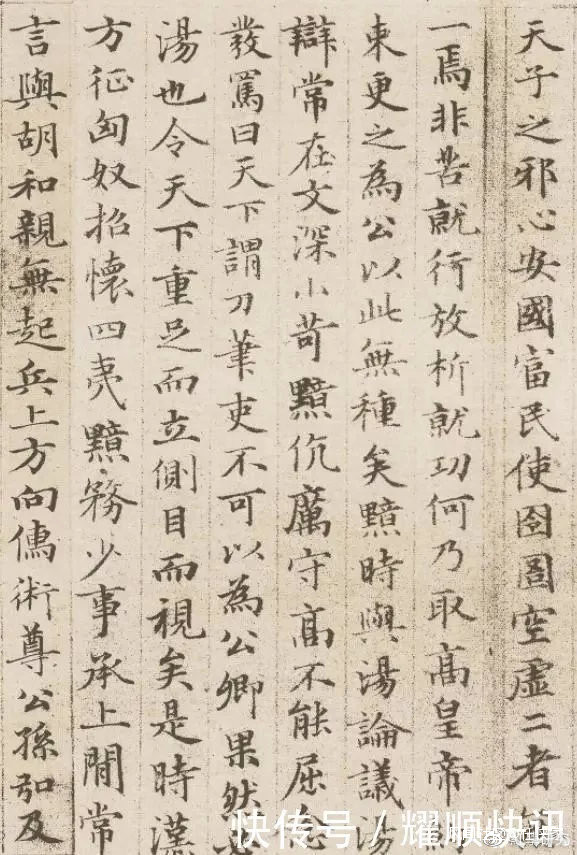 天子之邪心安國富民使囹圄空虛二者
一焉非苦就行放析就功何乃取高皇帝
束更之為公以此無種矣黯時與湯論議湯
辯常在文深小苛黯伉厲守高不能屈忿
發罵曰天下謂刀筆吏不可以為公卿果然
湯也令天下重足而立側目而視矣是時漢
方征匈奴招懷四夷黯務少事承上閒常
言與胡和親無起兵上方向儒術尊公孫弘及
快传号 / 耀顺快讯